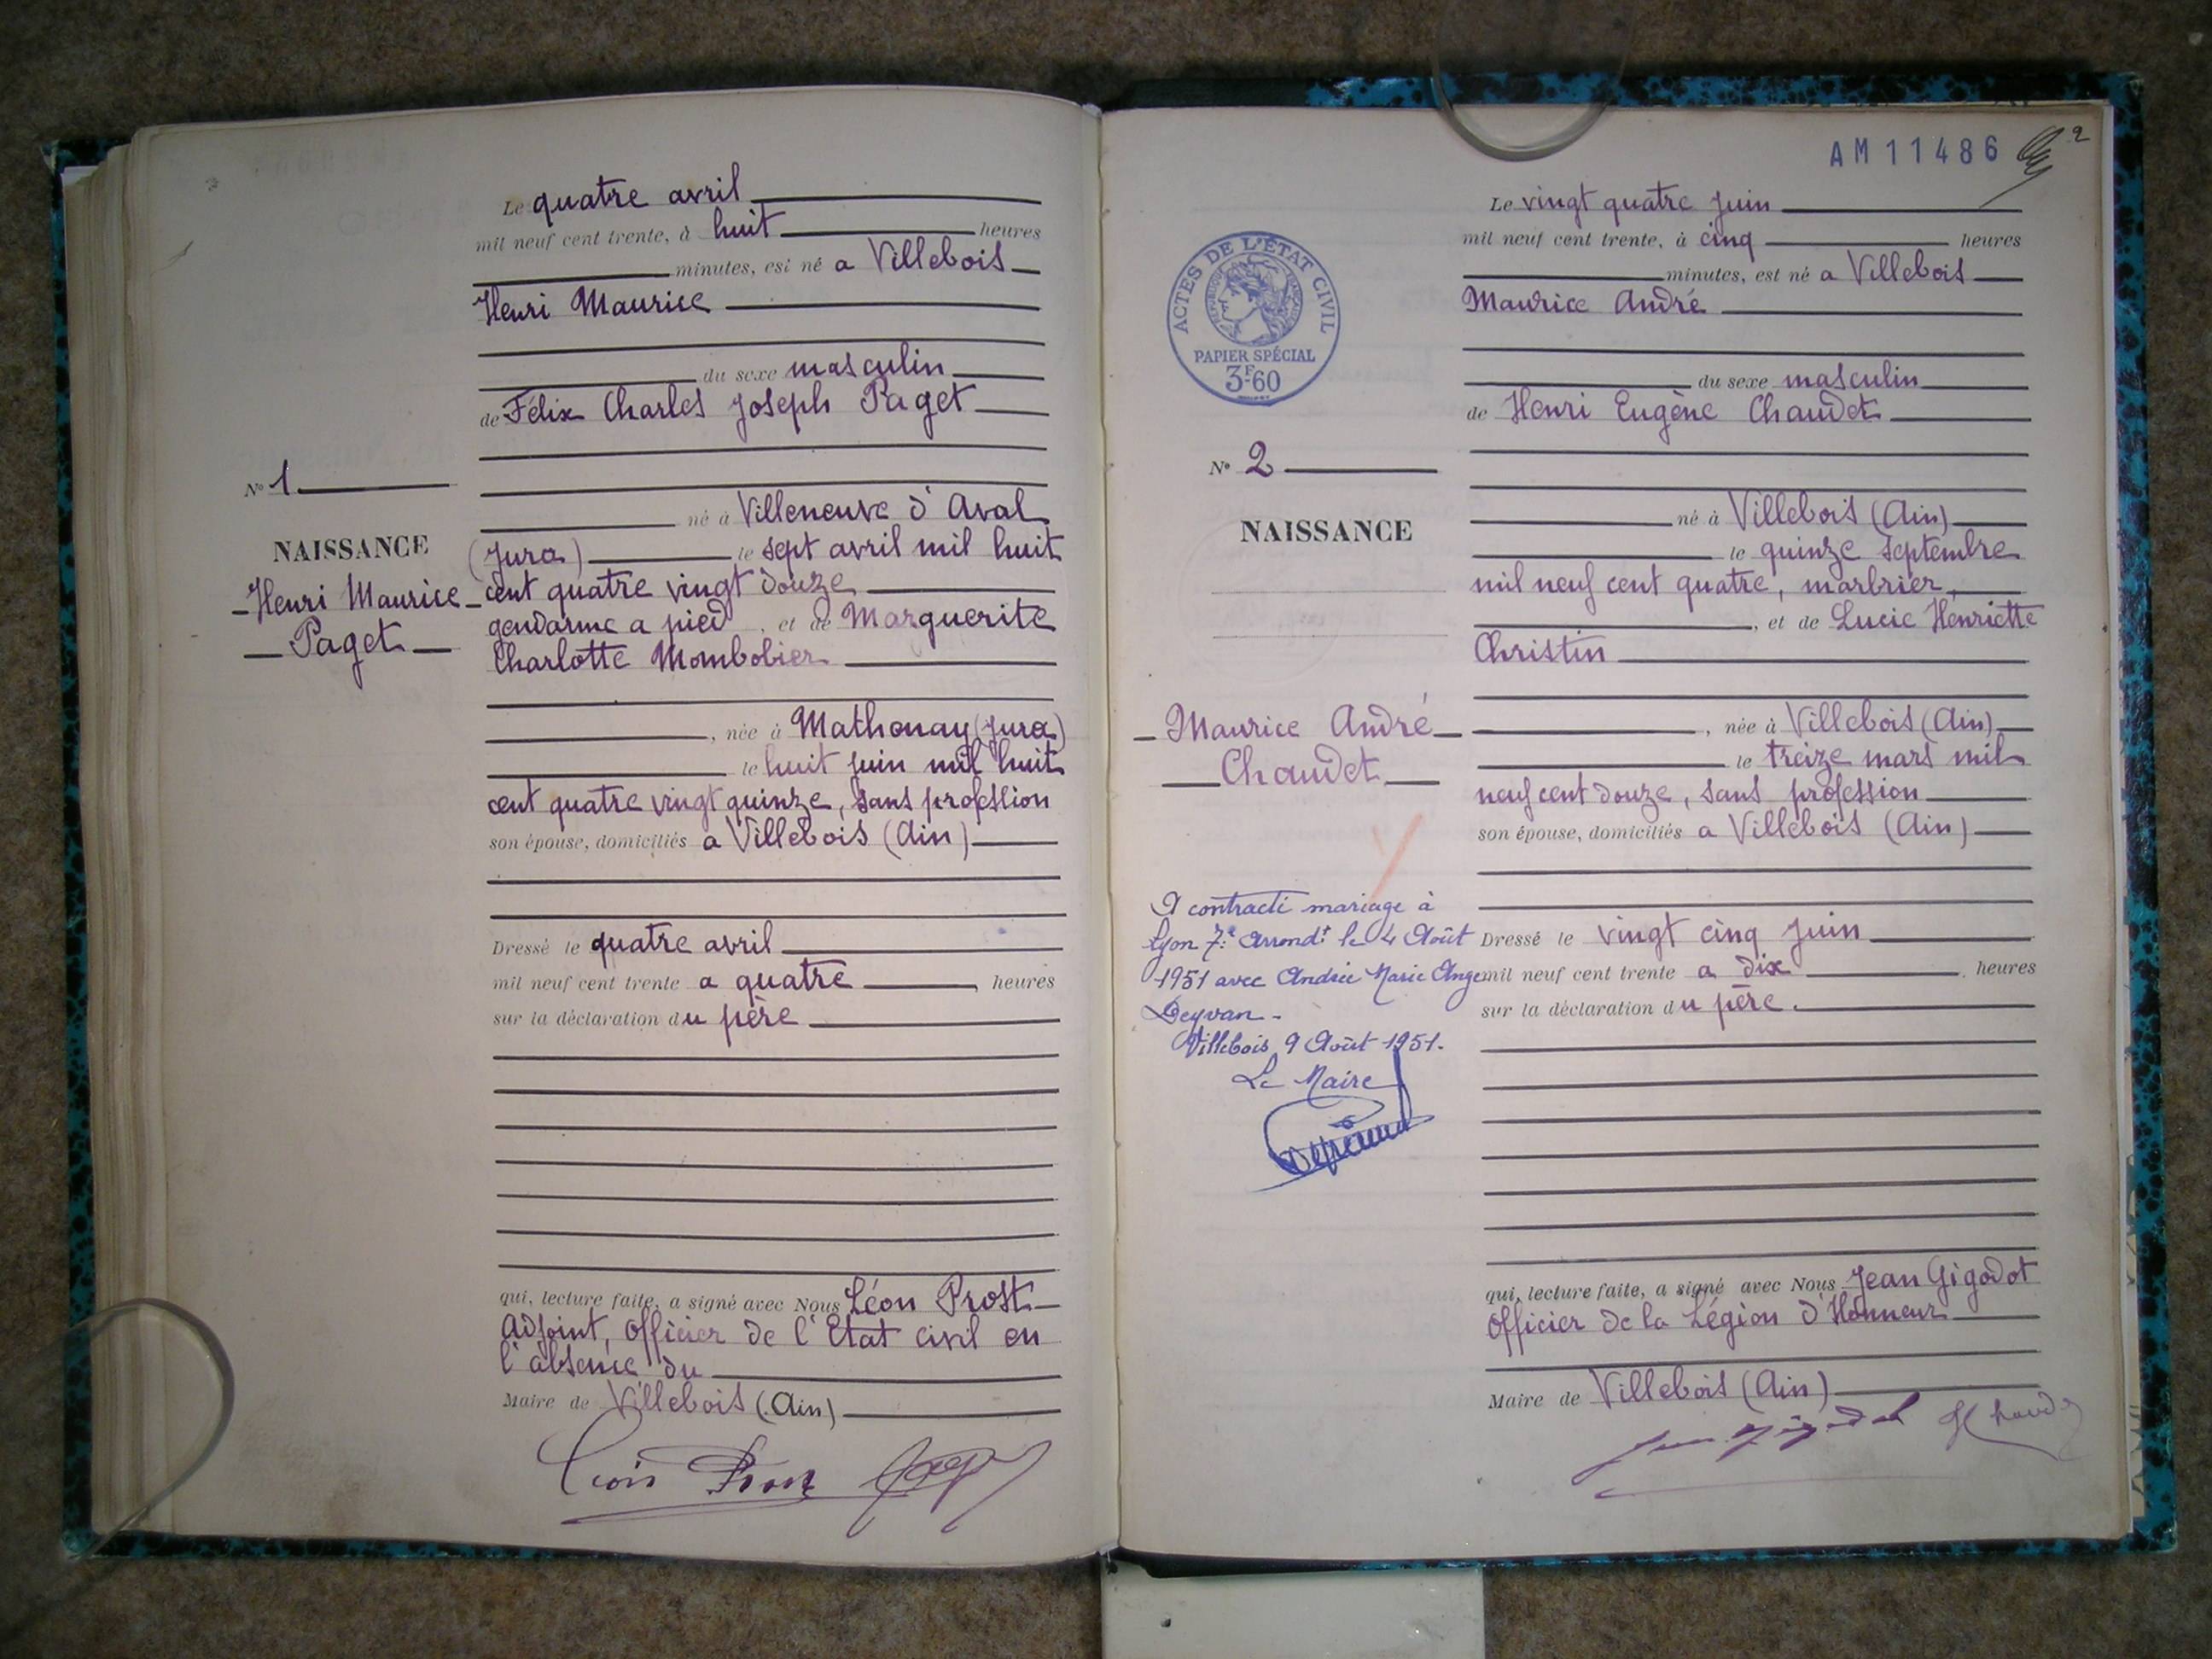 Le quatre avril
mil neuf cent trente, à huit heures
minutes, est né a Villebois
Henri Maurice
du sexe masculin
de Félix Charles Joseph Paget
N° 1
né à Villeneuve d'Aval
NAISSANCE
(Jura) le sept avril mil huit
Henri Maurice
cent quatre vingt douze
Paget
gendarme a pied, et de Marguerite
Charlotte Mombobier
, née à Mathenay (Jura)
le huit juin mil huit
cent quatre vingt quinze, sans profession
son épouse, domiciliés a Villebois (Ain)
Dressé le quatre avril
mil neuf cent trente a quatre, heures
sur la déclaration du père
qui, lecture faite, a signé avec Nous Léon Prost
Adjoint, Officier de l'Etat civil en
l'absence du
Maire de Villebois (Ain)
Léon Prost
AM11486
2
Le vingt quatre Juin
mil neuf cent trente, à cinq heures
minutes, est né a Villebois
Maurice André
ACTES DE L'ÉTAT CIVIL
RÉPUBLIQUE FRANÇAISE
PAPIER SPÉCIAL
3F60
du sexe masculin
de Henri Eugène Chaudet
N° 2
NAISSANCE
né à Villebois (Ain)
le quinze septembre
mil neuf cent quatre, marbrier,
, et de Lucie Henriette
Christin
Maurice André
Chaudet
, née à Villebois (Ain)
le treize mars mil
neuf cent douze, sans profession
son épouse, domiciliés a Villebois (Ain)
A contracté mariage à
Lyon 7e Arrondt le 4 Août
1951 avec Andrée Marie Ange
Deyvan -
Villebois 9 Août 1951.
Le Maire
Dressé le vingt cinq Juin
mil neuf cent trente a dix, heures
sur la déclaration du père.
qui, lecture faite, a signé avec Nous Jean Gigodot
Officier de la Légion d'Honneur
Maire de Villebois (Ain)
Jean Gigodot H Chaudet